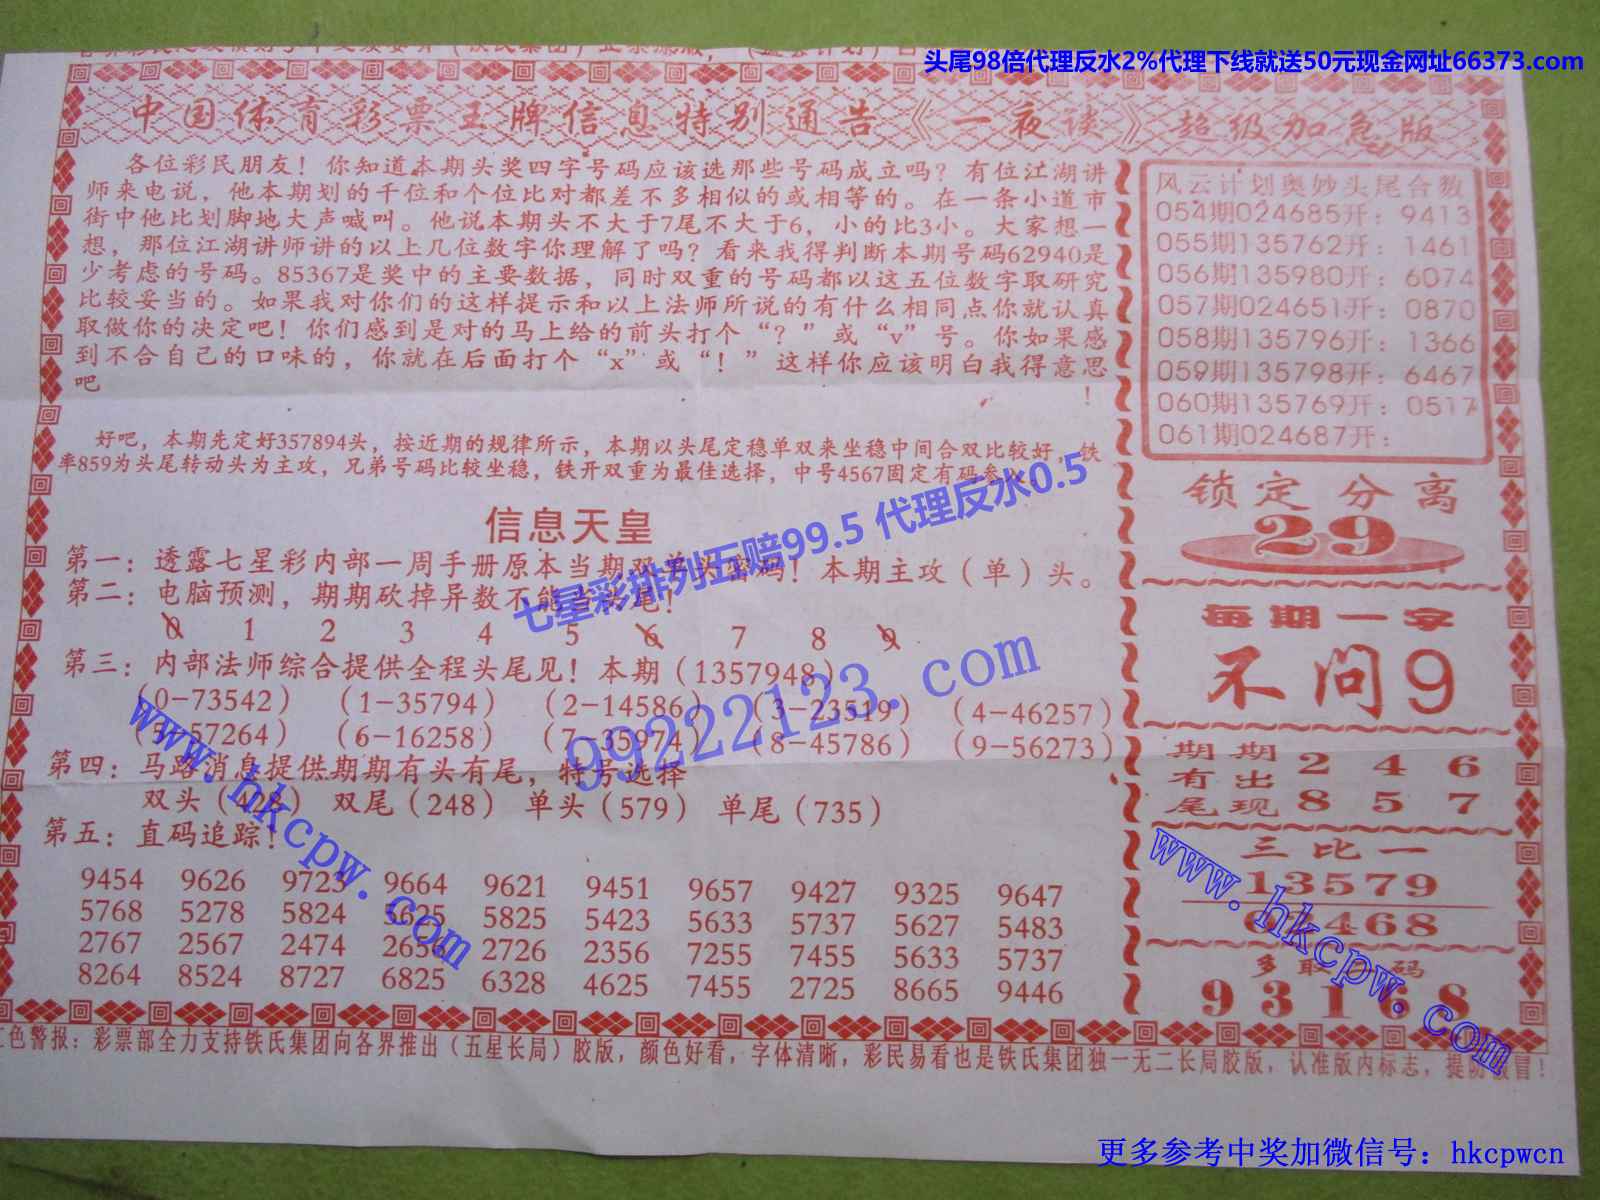 头尾98倍代理反水2%代理下线就送50元现金网址66373.com
中国体育彩票王牌信息特别通告《一夜谈》超级加急版
各位彩民朋友！你知道本期头奖四字号码应该选那些号码成立吗？有位江湖讲
师来电说，他本期划的千位和个位比对都差不多相似的或相等的。在一条小道市
街中他比划脚地大声喊叫。他说本期头不大于7尾不大于6，小的比3小。大家想一
想，那位江湖讲师讲的以上几位数字你理解了吗？看来我得判断本期号码62940是
少考虑的号码。85367是奖中的主要数据，同时双重的号码都以这五位数字取研究
比较妥当的。如果我对你们的这样提示和以上法师所说的有什么相同点你就认真
取做你的决定吧！你们感到是对的马上给的前头打个“？”或“v”号。你如果感
到不合自己的口味的，你就在后面打个“x”或“！”这样你应该明白我得意思
吧！
好吧，本期先定好357894头，按近期的规律所示，本期以头尾定稳单双来坐稳中间合双比较好，铁
率859为头尾转动头为主攻，兄弟号码比较坐稳，铁开双重为最佳选择，中号4567固定有码参
信息天皇
第一：透露七星彩内部一周手册原本当期双单头密码！本期主攻（单）头。
第二：电脑预测，期期砍掉异数不能当头尾！
0 1 2 3 4 5 6 7 8 9
第三：内部法师综合提供全程头尾见！本期（1357948）
（0-73542）（1-35794）（2-14586）（3-23519）（4-46257）
（5-57264）（6-16258）（7-35974）（8-45786）（9-56273）
第四：马路消息提供期期有头有尾，特号选择
双头（428）双尾（248）单头（579）单尾（735）
第五：直码追踪！
9454 9626 9723 9664 9621 9451 9657 9427 9325 9647
5768 5278 5824 5625 5825 5423 5633 5737 5627 5483
2767 2567 2474 2656 2726 2356 7255 7455 5633 5737
8264 8524 8727 6825 6328 4625 7455 2725 8665 9446
风云计划奥妙头尾合数
054期024685开：9413
055期135762开：1461
056期135980开：6074
057期024651开：0870
058期135796开：1366
059期135798开：6467
060期135769开：0517
061期024687开：
锁定分离
29
每期一字
不问9
期期有出尾现
2 4 6
8 5 7
三比一
13579
468
多取 码
9 3 1 6 8
色警报：彩票部全力支持铁氏集团向各界推出（五星长局）胶版，颜色好看，字体清晰，彩民易看也是铁氏集团独一无二长局胶版，认准版内标志，提防假冒！
七星彩排列五赔99.5 代理反水0.5
99222123.com
www.hkcpw.com
www.hkcpw.com
更多参考中奖加微信号：hkcpwcn